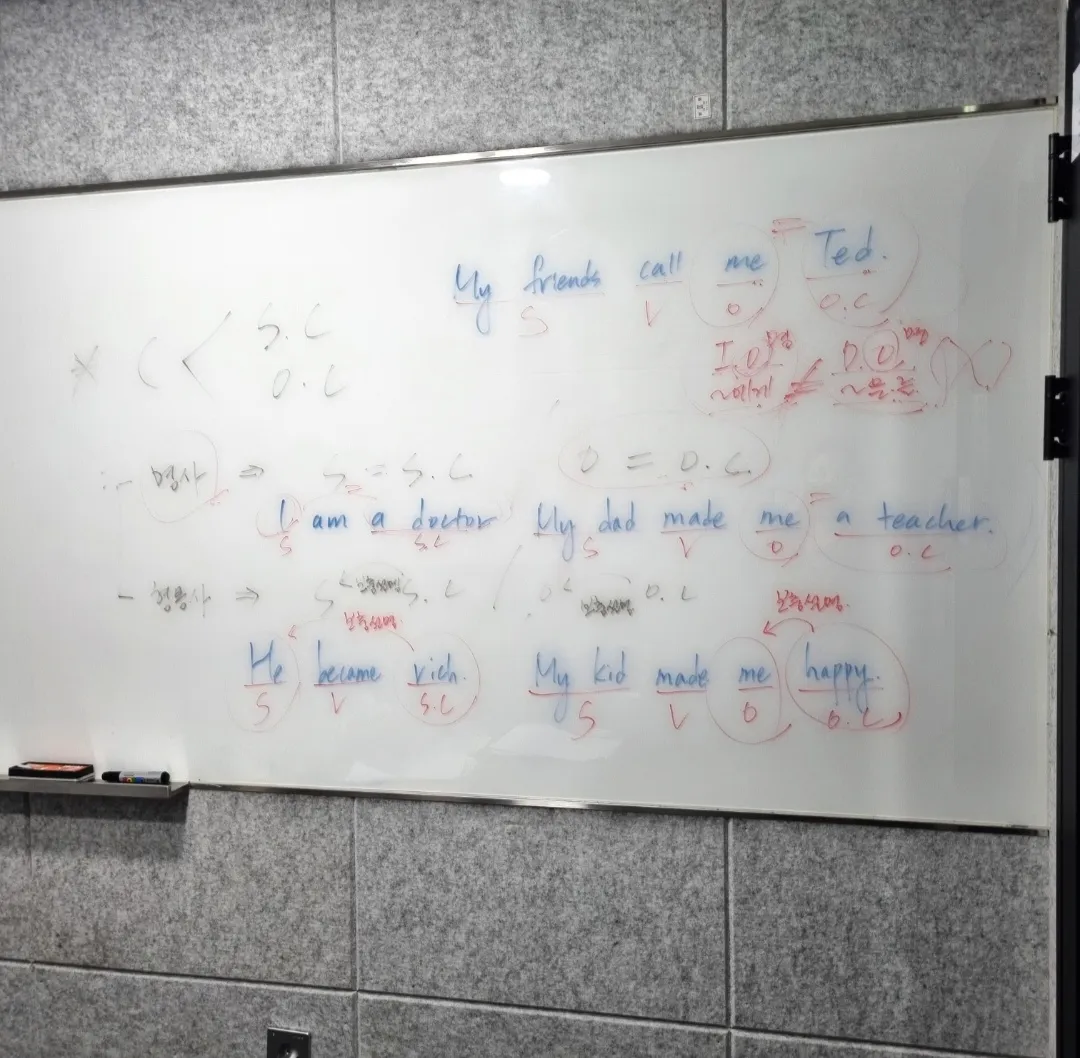 My friends call me = Ted.
S V O O.C
I.O 명 ≠ D.O 명
~에게 ~을.를
* C < S.C
O.C
:- 명사 ⇒ S = S.C O = O.C
I = am a doctor My dad made me = a teacher.
S S.C S V O O.C
- 형용사 ⇒ S < 보충설명 S.C / O < 보충설명 O.C
보충설명 보충설명.
He became rich. My kid made me happy.
S V S.C S V O O.C